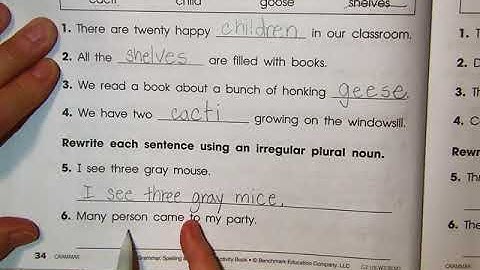 child goose shelves
1. There are twenty happy children in our classroom.
2. All the shelves are filled with books.
3. We read a book about a bunch of honking geese.
4. We have two cacti growing on the windowsill.
Rewrite each sentence using an irregular plural noun.
5. I see three gray mouse.
I see three gray mice.
6. Many person came to my party.
34 GRAMMAR Grammar, Spelling Activity Book • © Benchmark Education Company, LLC
1. T
2. D
3. Th
4. C
Rew
5. The
6. The
GRAMMAR